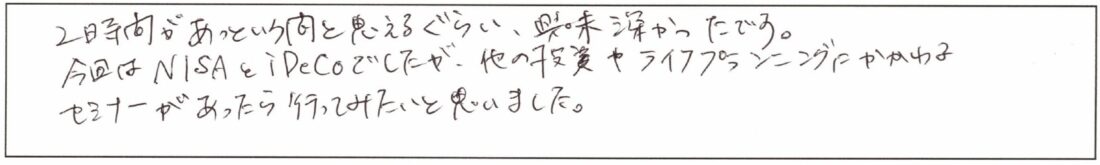 2時間があっという間と思えるぐらい、興味深かったです。
今回はNISAとiDeCoでしたが、他の投資やライフプランニングにかかわる
セミナーがあったら行ってみたいと思いました。